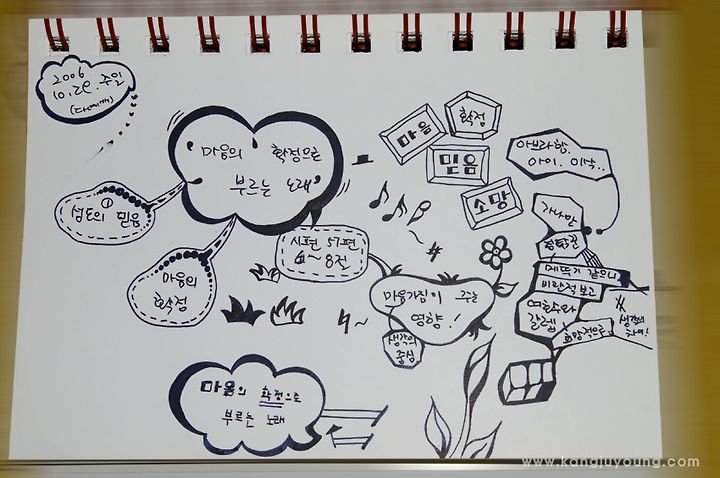 2006
10.29. 주일
마음의 확정으로
부르는 노래
①
성도의 믿음
마음의
확정
시편 57편
4~8절
마음
확정
믿음
소망
아브라함,
아이. 이삭..
가나안
정탐꾼
메뚜기 같으니
비관적 보고
여호수아
갈렙
희망적으로
생각의
차이!
마음가짐이 주는
영향!
생각의
중심
마음의 확정으로
부르는 노래
www.kangjuyoung.com